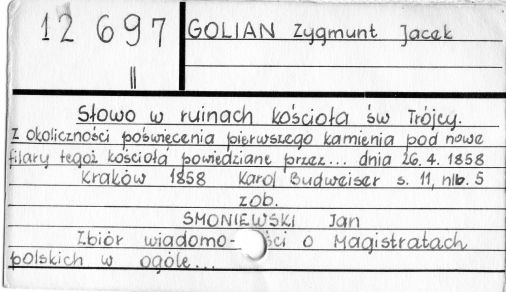 12 697
II
GOLIAN Zygmunt Jacek
Słowo w ruinach kościoła św Trójcy.
Z okoliczności poświęcenia pierwszego kamienia pod nowe
filary tegoż kościoła powiedziane przez... dnia 26. 4. 1858
Kraków 1858 Karol Budweiser s. 11, nlb. 5
zob.
SMONIEWSKI Jan
Zbiór wiadomo- ści o Magistratach
polskich w ogóle...